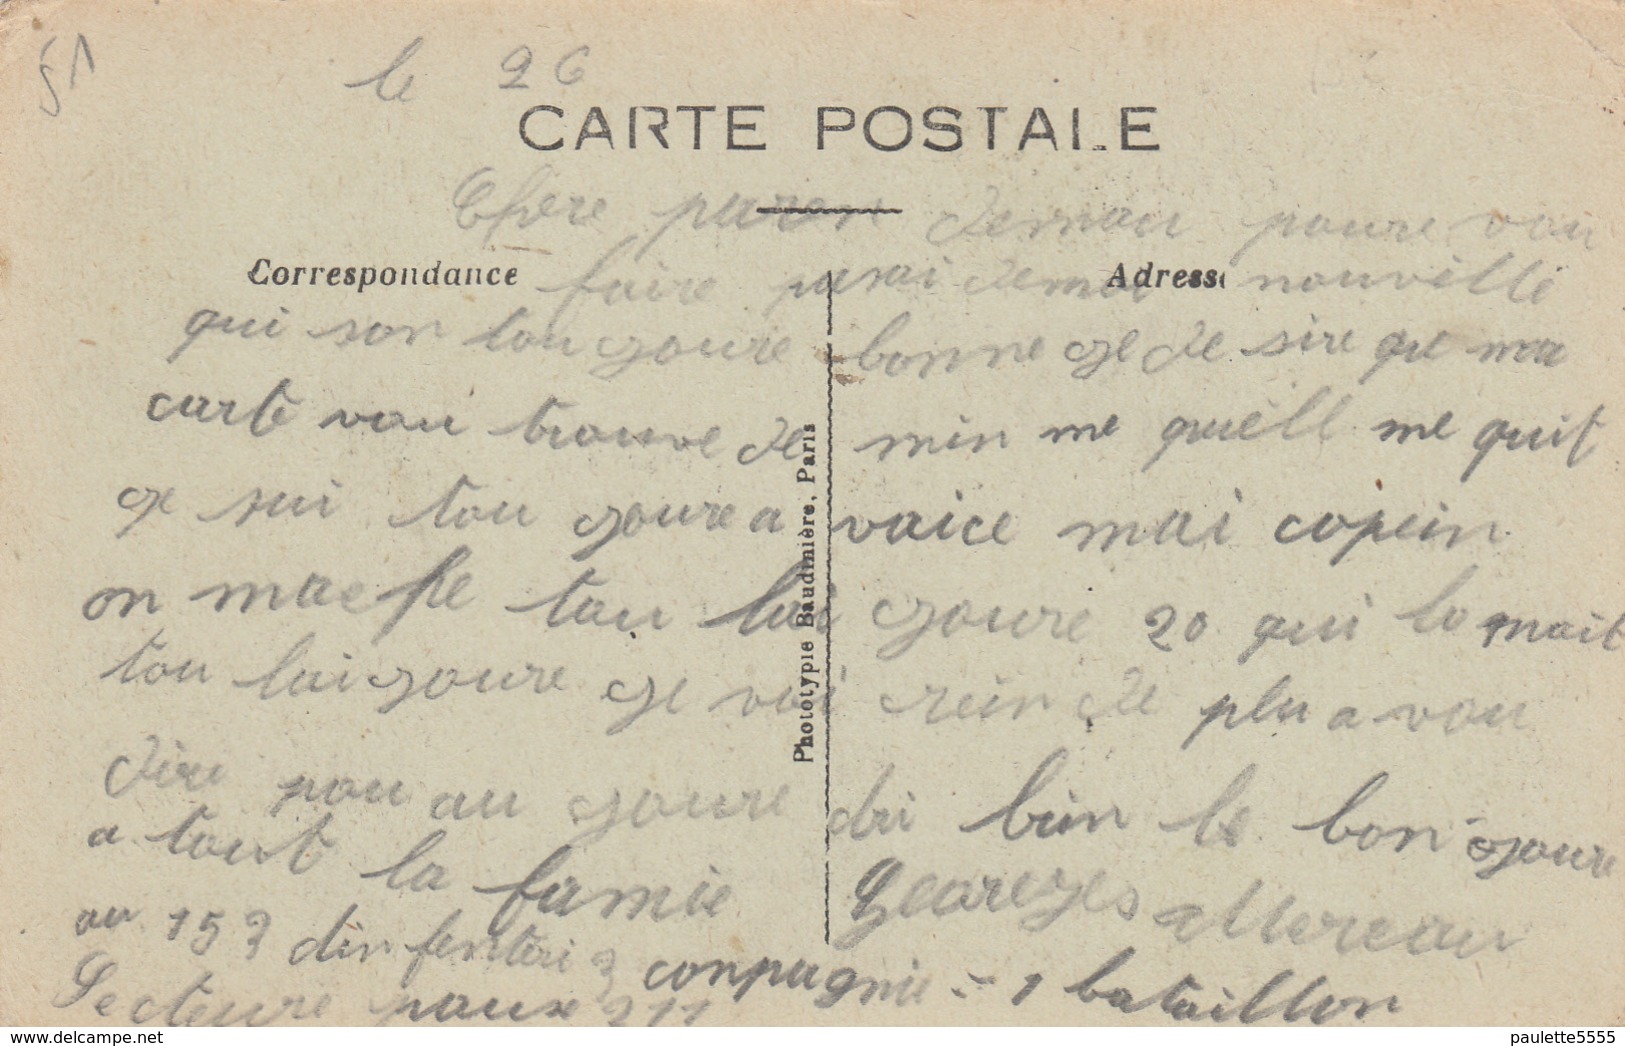 51
le 26
CARTE POSTALE
Chere paren deman poure vou
Correspondance
Adresse
faire nouvelle
qui son tou joure bonne je de sire que ma
carte vou trouve de min me quell me quit
je sui tou joure a vaice mai copein
on marche tou lai joure 20 qui lo mait
tou lai joure je voi rein de plu a vou
dire pou au joure dui bien le bon joure
a tout la famie Georeges Mereau
au 153 din fenteri 3 conpagnie - 1 bataillon
Secteure 211
Phototypie Baudinière, Paris
delcampe.net
paulette5555